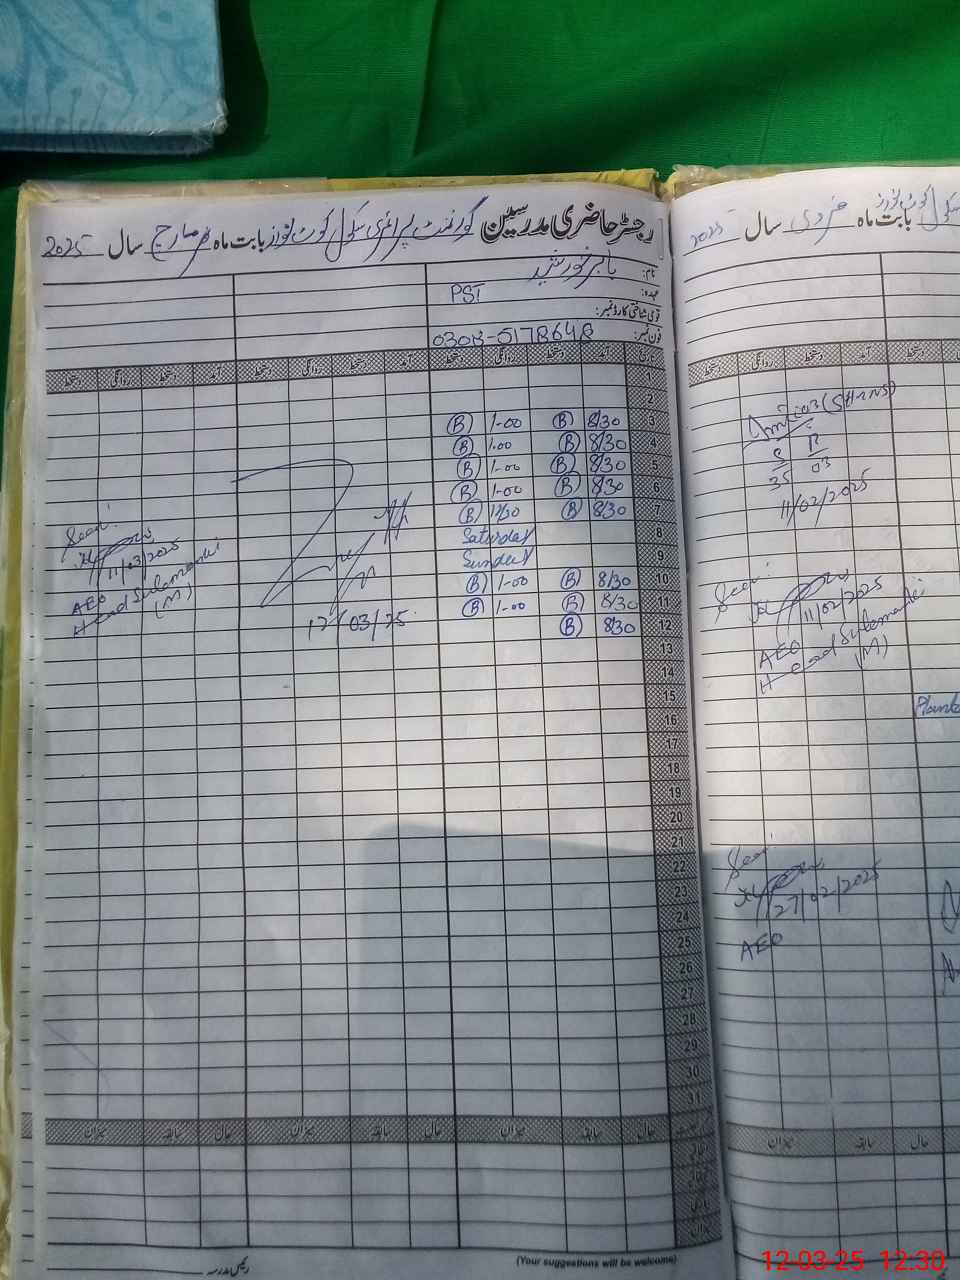 رجسٹر حاضری مدرسین گورنمنٹ پرائمری سکول کوٹ نورز بابت ماہ مارچ سال 2025
نام: بابر خورشید
عہدہ: PST
قومی شناختی کارڈ نمبر:
فون نمبر: 0308-5178648
تاریخ آمد دستخط روانگی دستخط آمد دستخط روانگی دستخط آمد دستخط روانگی دستخط
1
2
3 8/30 B 1-00 B
4 8/30 B 1-00 B
5 8/30 B 1-00 B
6 8/30 B 1-00 B
7 8/30 B 12/30 B
8 Saturday
9 Sunday
10 8/30 B 1-00 B
11 8/30 B 1-00 B
12 8/30 B
13
14
15
16
17
18
19
20
21
22
23
24
25
26
27
28
29
30
31
12/03/25
Seen!
11/03/2025
AEO
Head Sulemanki
(M)
حال سابقہ میزان حال سابقہ میزان حال سابقہ میزان
اتفاقی
رئیس مدرسہ
(Your suggestions will be welcome)
سکول کوٹ نورز بابت ماہ فروری سال 2025
دستخط آمد دستخط روانگی دستخط
11/02/2025
Seen!
11/02/2025
AEO
Head Sulemanki
(M)
Seen!
27/02/2025
AEO
میزان سابقہ حال
12-03-25 12:30